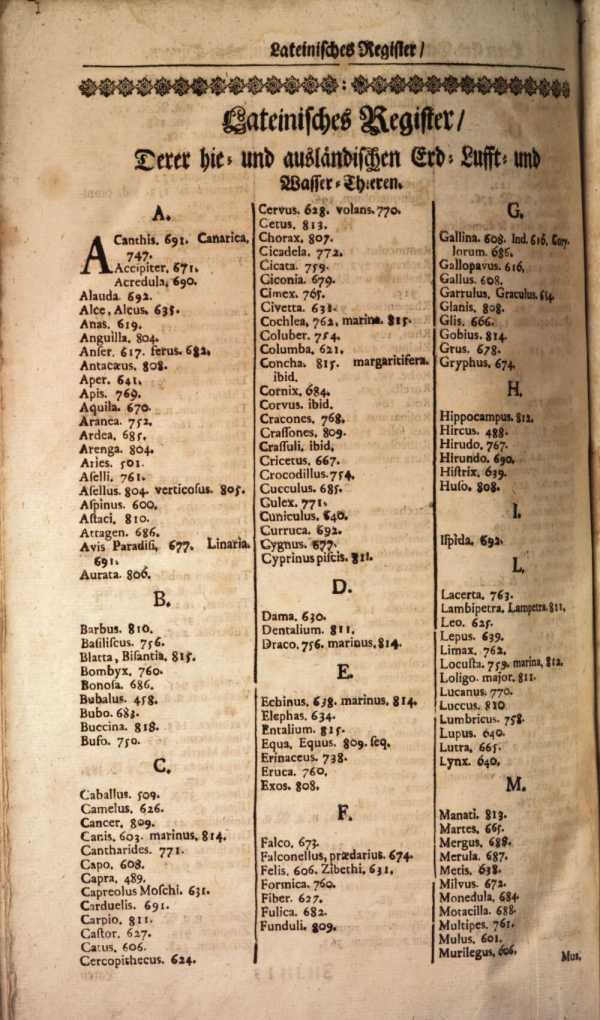 Lateinisches Register/
Lateinisches Register/
Derer hie- und ausländischen Erd- Lufft- und
Wasser-Thieren.
A.
ACanthis. 691. Canarica.
747.
Accipiter, 671.
Acredula, 690.
Alauda. 692.
Alce, Alcus. 635.
Anas. 619.
Anguilla, 804.
Anser. 617. ferus. 682.
Antacæus, 808.
Aper. 641.
Apis. 769.
Aquila. 670.
Aranea. 752.
Ardea, 685.
Arenga. 804.
Aries. 501.
Aselli. 761.
Asellus. 804. verticosus. 805.
Aspinus, 600.
Astaci, 810.
Attagen. 686.
Avis Paradisi, 677. Linaria.
691.
Aurata. 806.
B.
Barbus. 810.
Basiliscus, 756.
Blatta, Bisantia, 815.
Bombyx, 760.
Bonosa. 686.
Bubalus, 458.
Bubo. 683.
Buccina. 818.
Bufo. 750.
C.
Caballus. 509.
Camelus, 626.
Cancer, 809.
Canis, 603. marinus, 814.
Cantharides. 771.
Capo, 608.
Capra, 489.
Capreolus Moschi. 631.
Carduelis. 691.
Carpio, 811.
Castor. 627.
Catus, 606.
Cercopithecus. 624.
Cervus. 628. volans. 770.
Cetus, 813.
Chorax, 807.
Cicadela, 772.
Cicata. 759.
Ciconia. 679.
Cimex. 765.
Civetta. 631.
Cochlea, 762, marina. 815.
Coluber. 754.
Columba, 621.
Concha. 815. margaritifera.
ibid.
Cornix, 684.
Corvus. ibid.
Cracones, 768.
Crassones, 809.
Crassuli, ibid.
Cricetus, 667.
Crocodillus. 754.
Cucculus. 685.
Culex. 771.
Cuniculus, 640.
Curruca, 692.
Cygnus. 677.
Cyprinus piscis. 811.
D.
Dama. 630.
Dentalium. 811.
Draco. 756. marinus, 814.
E.
Echinus, 638. marinus, 814.
Elephas. 634.
Entalium. 815.
Equa, Equus. 809. seq.
Erinaceus. 738.
Eruca. 760.
Exos. 808.
F.
Falco, 673.
Falconellus, prædarius. 674.
Felis, 606. Zibethi, 631.
Formica. 760.
Fiber. 627.
Fulica. 682.
Funduli. 809.
G.
Gallina. 608. Ind. 616.
lorum. 686.
Gallopavus. 616.
Gallus. 608.
Garrulus, Graculus.
Glanis. 808.
Glis. 666.
Gobius. 814.
Grus. 678.
Gryphus, 674.
H.
Hippocampus. 812.
Hircus. 488.
Hirudo, 767.
Hirundo. 690.
Histrix, 639.
Huso. 808.
I.
Ispida. 692.
L.
Lacerta. 763.
Lambipetra, Lampetra. 811.
Leo. 625.
Lepus. 639.
Limax. 762.
Locusta. 759. marina, 812.
Loligo. major. 811.
Lucanus. 770.
Luccus. 810
Lumbricus. 758.
Lupus. 640.
Lutra, 665.
Lynx. 640.
M.
Manati. 813.
Martes. 665.
Mergus, 688.
Merula. 687.
Metis. 638.
Milvus. 672.
Monedula, 684.
Motacilla. 688.
Multipes. 761.
Mulus. 601.
Murilegus, 606.
Mus.